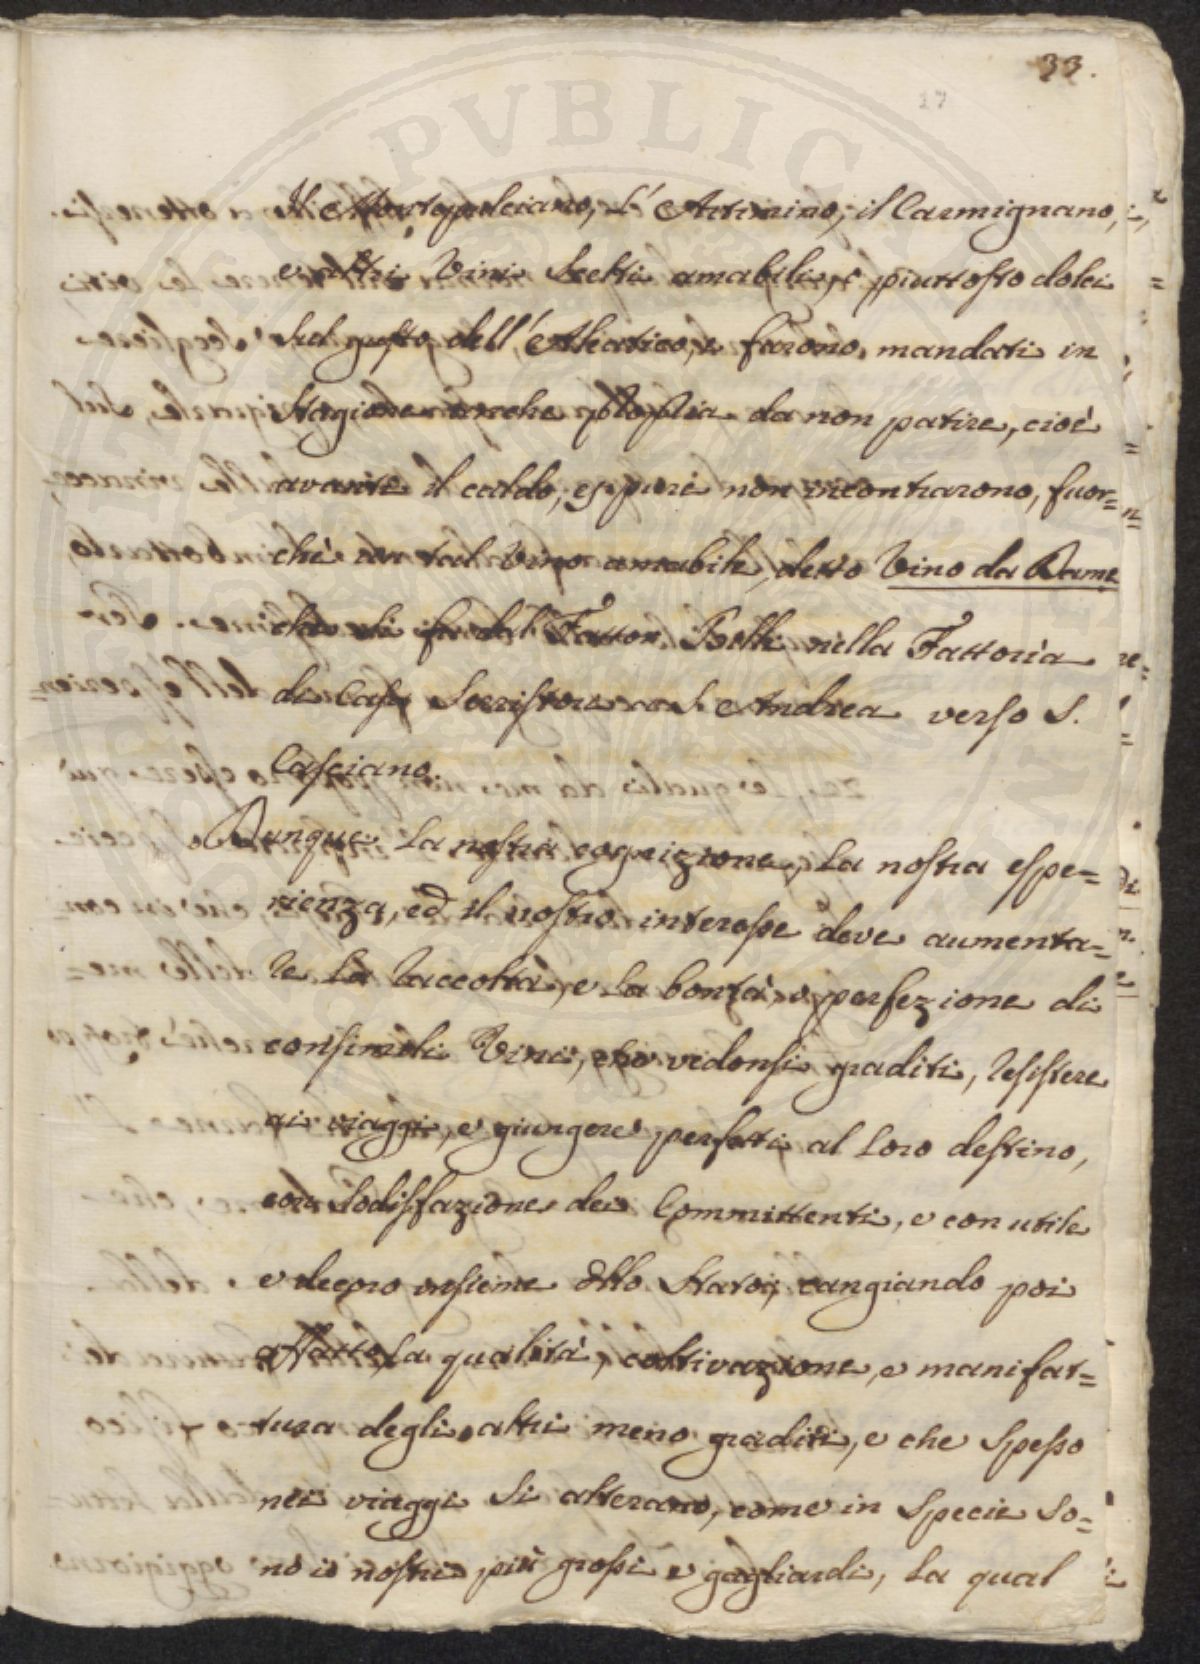 33.
17
Il Montepulciano, l'Artimino, il Carmignano,
e altri Vini Scelti amabili, e piuttosto dolci
sul gusto dell'Aleatico, e furono mandati in
Stagione anche propria da non patire, cioè
avanti il caldo, eppure non incontrarono, fuor=
chè un tal Vino amabile, detto Vino da Dame
che si fa dal Fattor Betti nella Fattoria
di Casa a S. Andrea verso S.
Casciano.
Dunque la nostra cognizione, la nostra espe=
rienza, ed il nostro interesse deve aumenta=
re la raccolta, e la bontà, e perfezione di
consimili Vini, che vedonsi graditi, resistere
ai viaggi, e giungere perfetti al loro destino,
con sodisfazione dei Committenti, e con utile
e decoro insieme dello Stato; cangiando poi
affatto la qualità, coltivazione, e manifat=
tura degli altri meno graditi, e che spesso
nei viaggi si alterano, come in specie so=
no i nostri più grossi e gagliardi, la qual